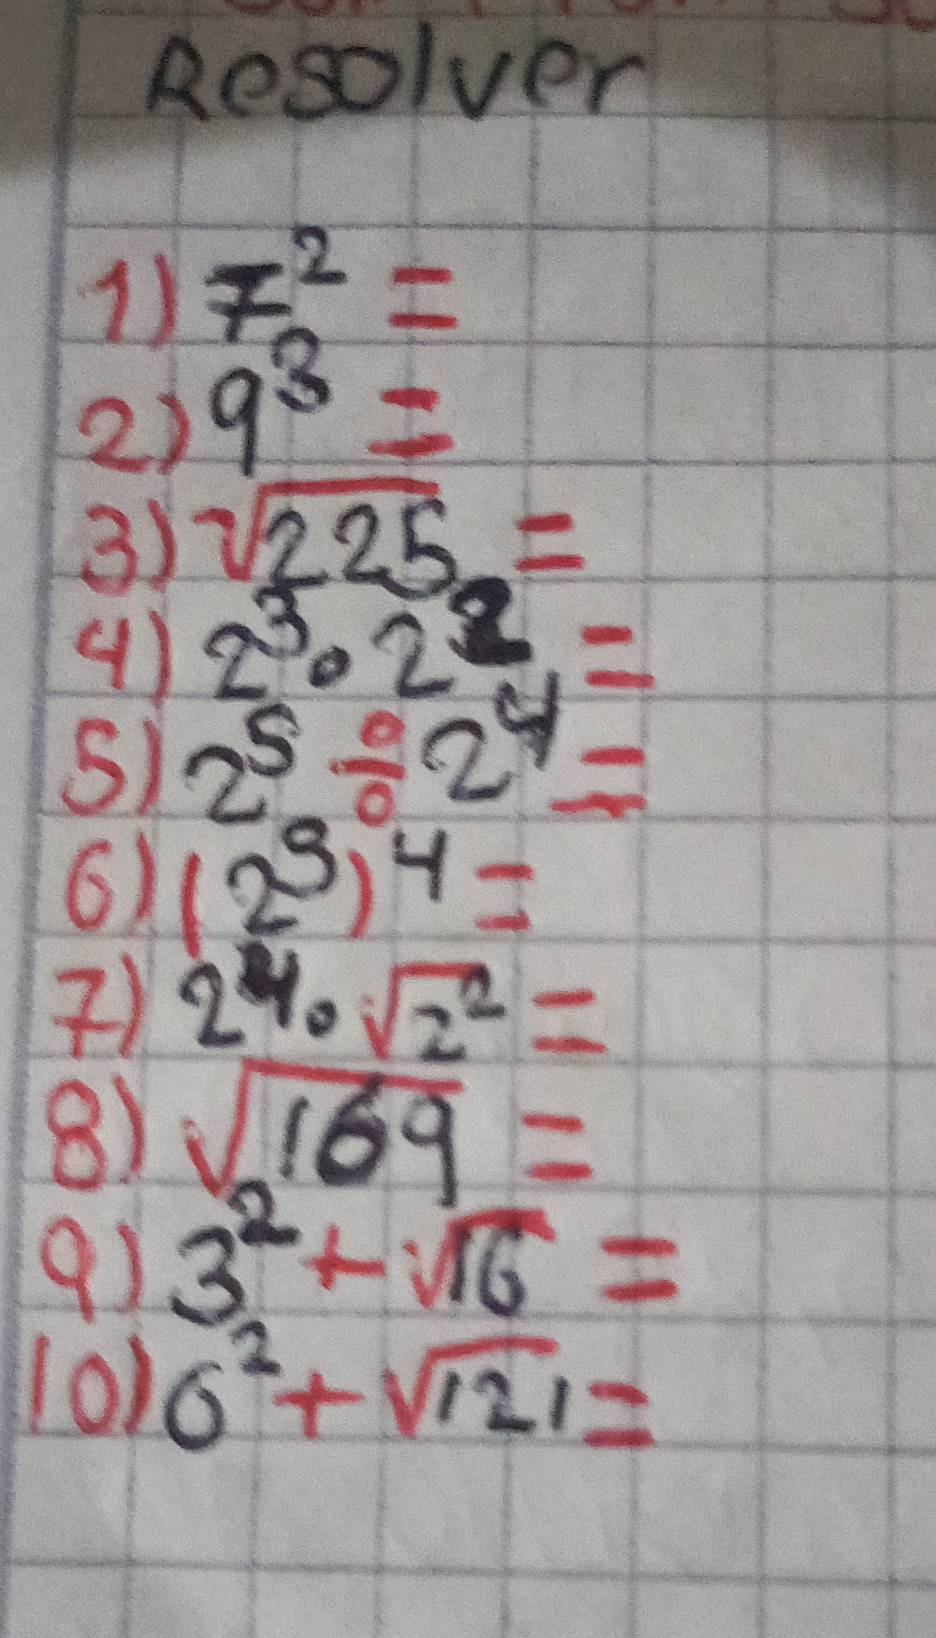 Resolver
1) 7² =
2) 9³ =
3) √225 =
4) 2³ • 2² =
5) 2⁵ ÷ 2⁴ =
6) (2³)⁴ =
7) 2⁴ • √2² =
8) √169 =
9) 3² + √16 =
10) 6² + √121 =